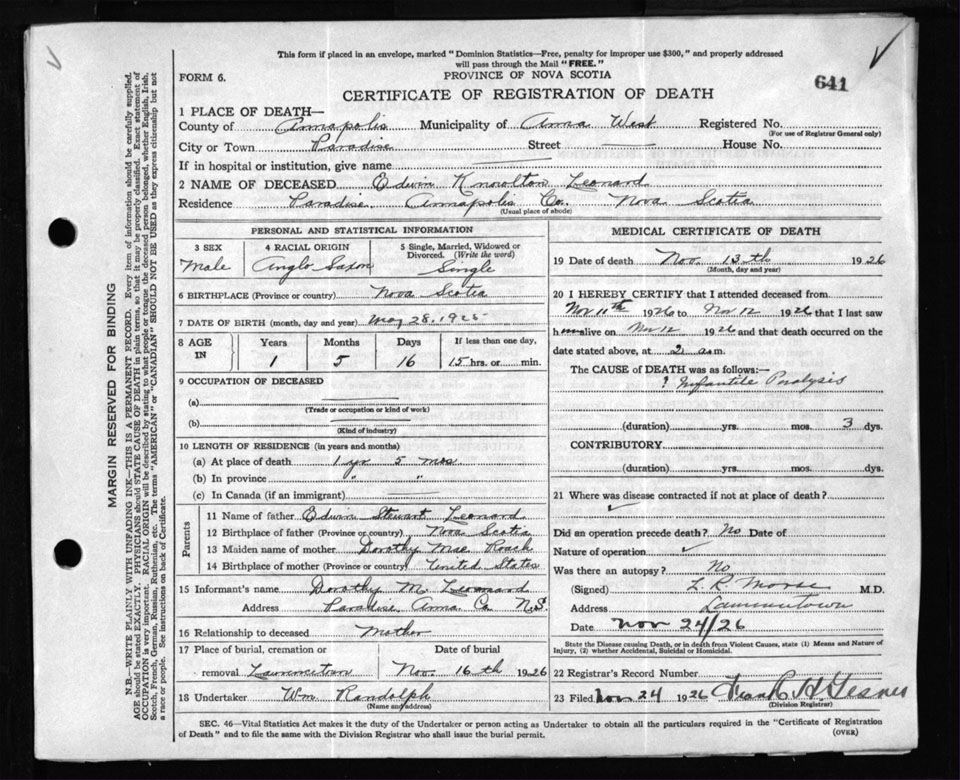 This form if placed in an envelope, marked "Dominion Statistics—Free, penalty for improper use $300," and properly addressed
will pass through the Mail "FREE."
FORM 6.
PROVINCE OF NOVA SCOTIA
641
CERTIFICATE OF REGISTRATION OF DEATH
1 PLACE OF DEATH—
County of Annapolis Municipality of Anna West Registered No.
(For use of Registrar General only)
City or Town Paradise Street House No.
If in hospital or institution, give name
2 NAME OF DECEASED Edwin Knowlton Leonard
Residence Paradise Annapolis Co. Nova Scotia
(Usual place of abode)
PERSONAL AND STATISTICAL INFORMATION
3 SEX 4 RACIAL ORIGIN 5 Single, Married, Widowed or
Divorced. (Write the word)
Male Anglo Saxon Single
6 BIRTHPLACE (Province or country) Nova Scotia
7 DATE OF BIRTH (month, day and year) May 28, 1925
8 AGE IN Years Months Days If less than one day,
1 5 16 15 hrs. or min.
9 OCCUPATION OF DECEASED
(a)
(Trade or occupation or kind of work)
(b)
(Kind of industry)
10 LENGTH OF RESIDENCE (in years and months)
(a) At place of death 1 yr 5 mos
(b) In province " "
(c) In Canada (if an immigrant)
Parents
11 Name of father Edwin Stewart Leonard
12 Birthplace of father (Province or country) Nova Scotia
13 Maiden name of mother Dorothy Mae Roach
14 Birthplace of mother (Province or country) United States
15 Informant's name Dorothy M. Leonard
Address Paradise Anna Co. N.S.
16 Relationship to deceased Mother
17 Place of burial, cremation or Date of burial
removal Nov. 16th 1926
18 Undertaker Wm. Randolph
(Name and address)
MEDICAL CERTIFICATE OF DEATH
19 Date of death Nov. 13th 1926
(Month, day and year)
20 I HEREBY CERTIFY that I attended deceased from
Nov 11th 1926 to Nov 12 1926 that I last saw
h alive on Nov 12 1926 and that death occurred on
date stated above, at 2 a.m.
The CAUSE of DEATH was as follows:—
? Infantile Paralysis
(duration) yrs. mos. 3 dys.
CONTRIBUTORY
(duration) yrs. mos. dys.
21 Where was disease contracted if not at place of death?
Did an operation precede death? No Date of
Nature of operation
Was there an autopsy? No
(Signed) L. R. Morse M.D.
Address
Date Nov 24/26
State the Disease causing Death, or in death from Violent Causes, state (1) Means and Nature of
Injury, (2) whether Accidental, Suicidal or Homicidal.
22 Registrar's Record Number
23 Filed Nov 24 1926 Frank H. Gesner
(Division Registrar)
SEC. 46—Vital Statistics Act makes it the duty of the Undertaker or person acting as Undertaker to obtain all the particulars required in the "Certificate of Registration
of Death" and to file the same with the Division Registrar who shall issue the burial permit.
(OVER)
MARGIN RESERVED FOR BINDING
N.B.—WRITE PLAINLY WITH UNFADING INK—THIS IS A PERMANENT RECORD. Every item of information should be carefully supplied.
AGE should be stated EXACTLY. PHYSICIANS should STATE CAUSE OF DEATH in plain terms, so that it may be properly classified. Exact statement of
OCCUPATION is very important. RACIAL ORIGIN will be described by stating to what people or tongue the deceased person belonged, whether English, Irish,
Scotch, French, German, Russian, Ruthenian, etc. The terms "AMERICAN" or "CANADIAN" SHOULD NOT BE USED as they express citizenship but not
a race or people. See instructions on back of Certificate.